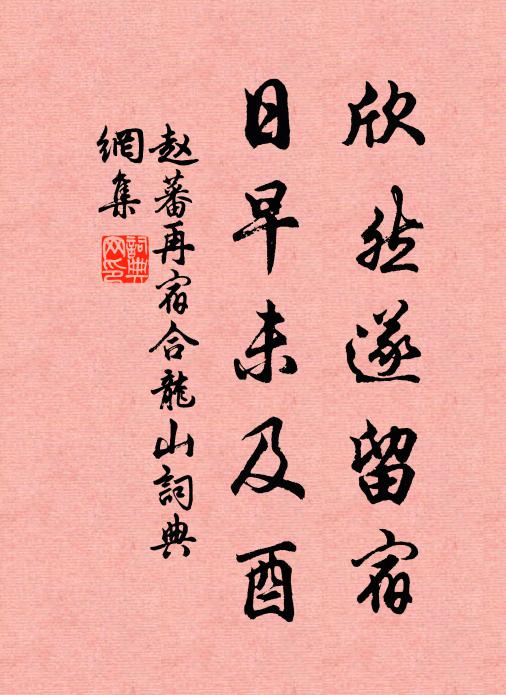 欣然遂留宿
日早未及酉
赵蕃再宿合龍山詞典
網集
詞典
网印